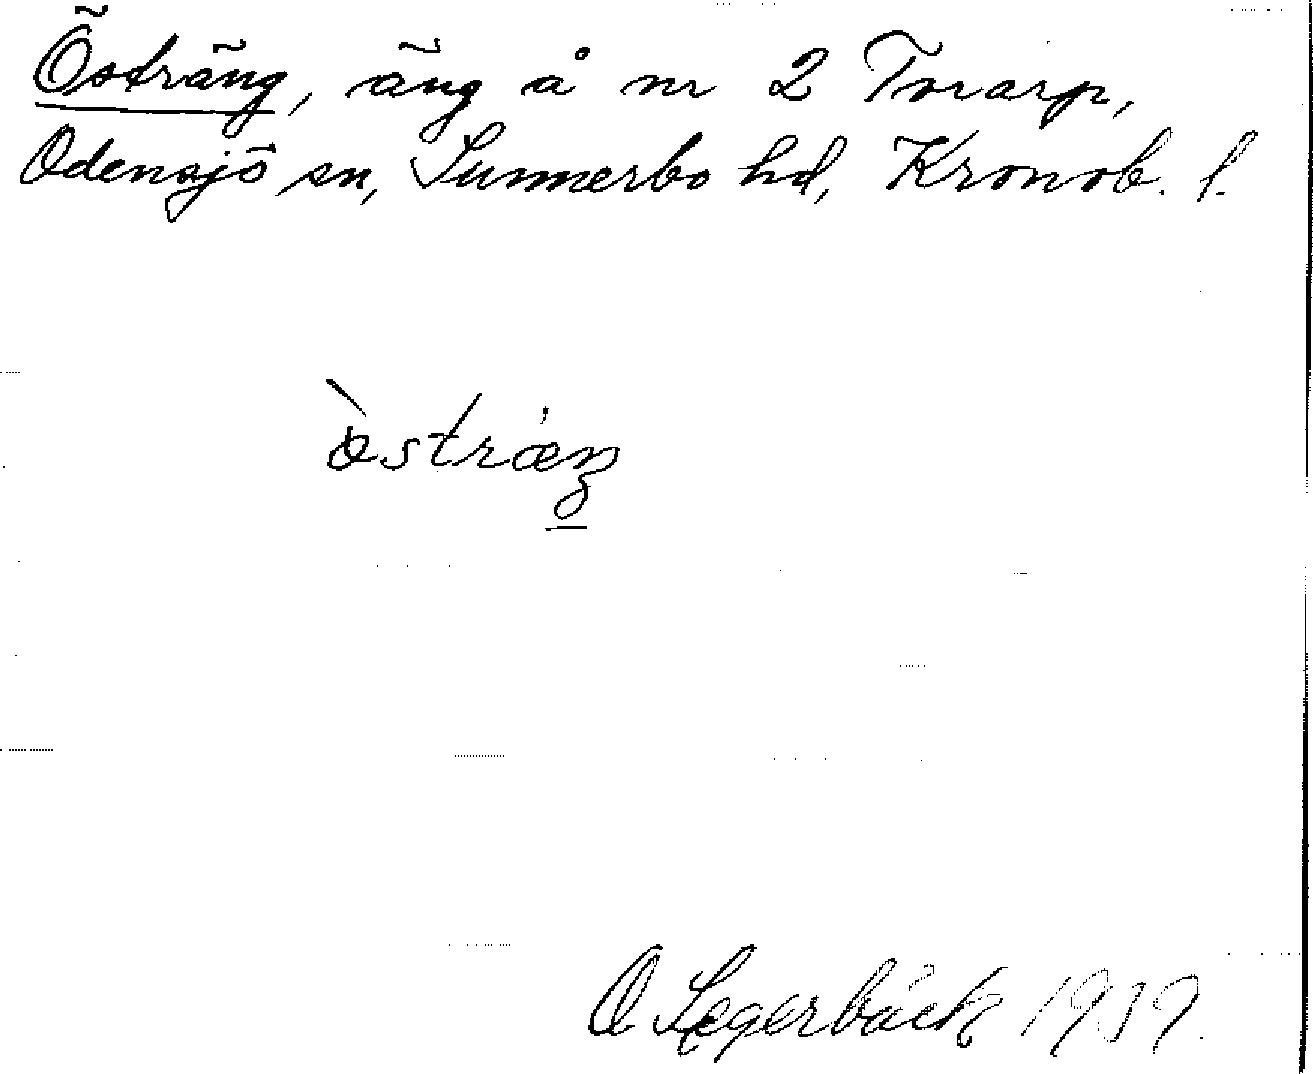 Östräng, äng å nr 2 Torarp,
Odensjö sn, Sunnerbo hd, Kronob. l.
òstræŋ
O Legerbäck 1939.